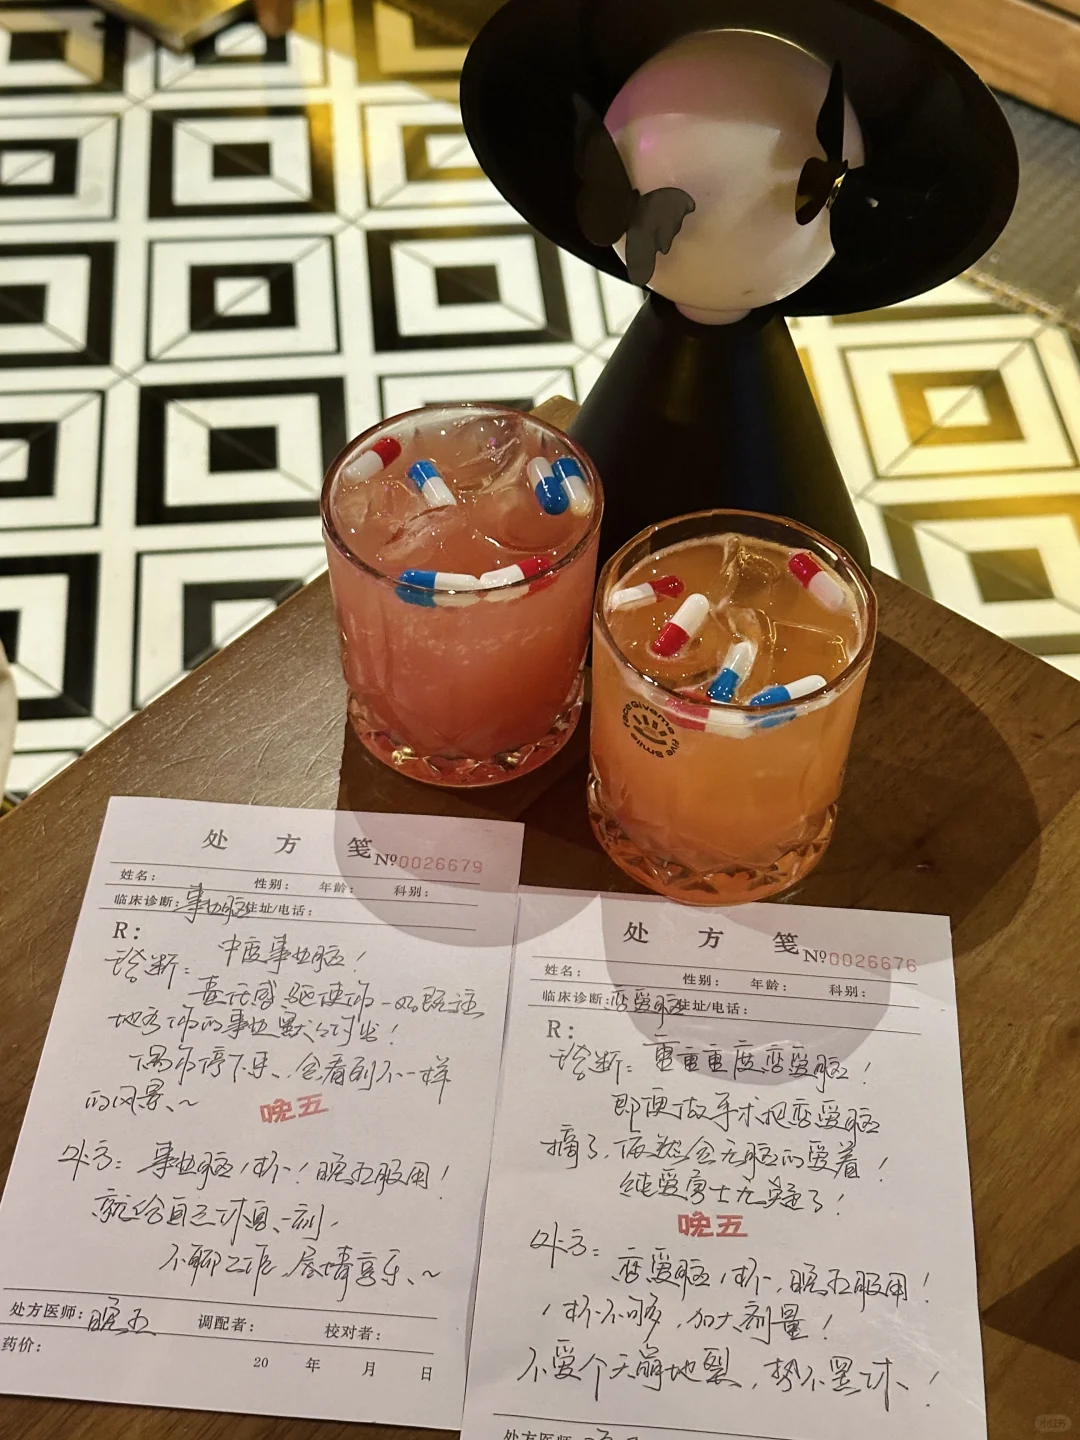 处 方 笺 №0026679
姓名： 性别： 年龄： 科别：
临床诊断：事业脑 住址/电话：
R：
诊断：中度事业脑！
责任感驱使你一如既往
地为你的事业默默付出！
偶尔停下来、会看到不一样
的风景、～
晚五
处方：事业脑1杯！晚五服用！
就给自己休息一刻，
不聊工作，尽情享乐、～
处方医师：晚五 调配者： 校对者：
药价： 20 年 月 日
处 方 笺 №0026676
姓名： 性别： 年龄： 科别：
临床诊断：恋爱脑 住址/电话：
R：
诊断：重重重度恋爱脑！
即便做手术把恋爱脑
摘了，依然会无脑的爱着！
纯爱勇士尤其了！
晚五
处方：恋爱脑1杯、晚五服用！
1杯不够，加大剂量！
不爱个天崩地裂，势不罢休、！
处方医师：
Give me five
face smile
小红书